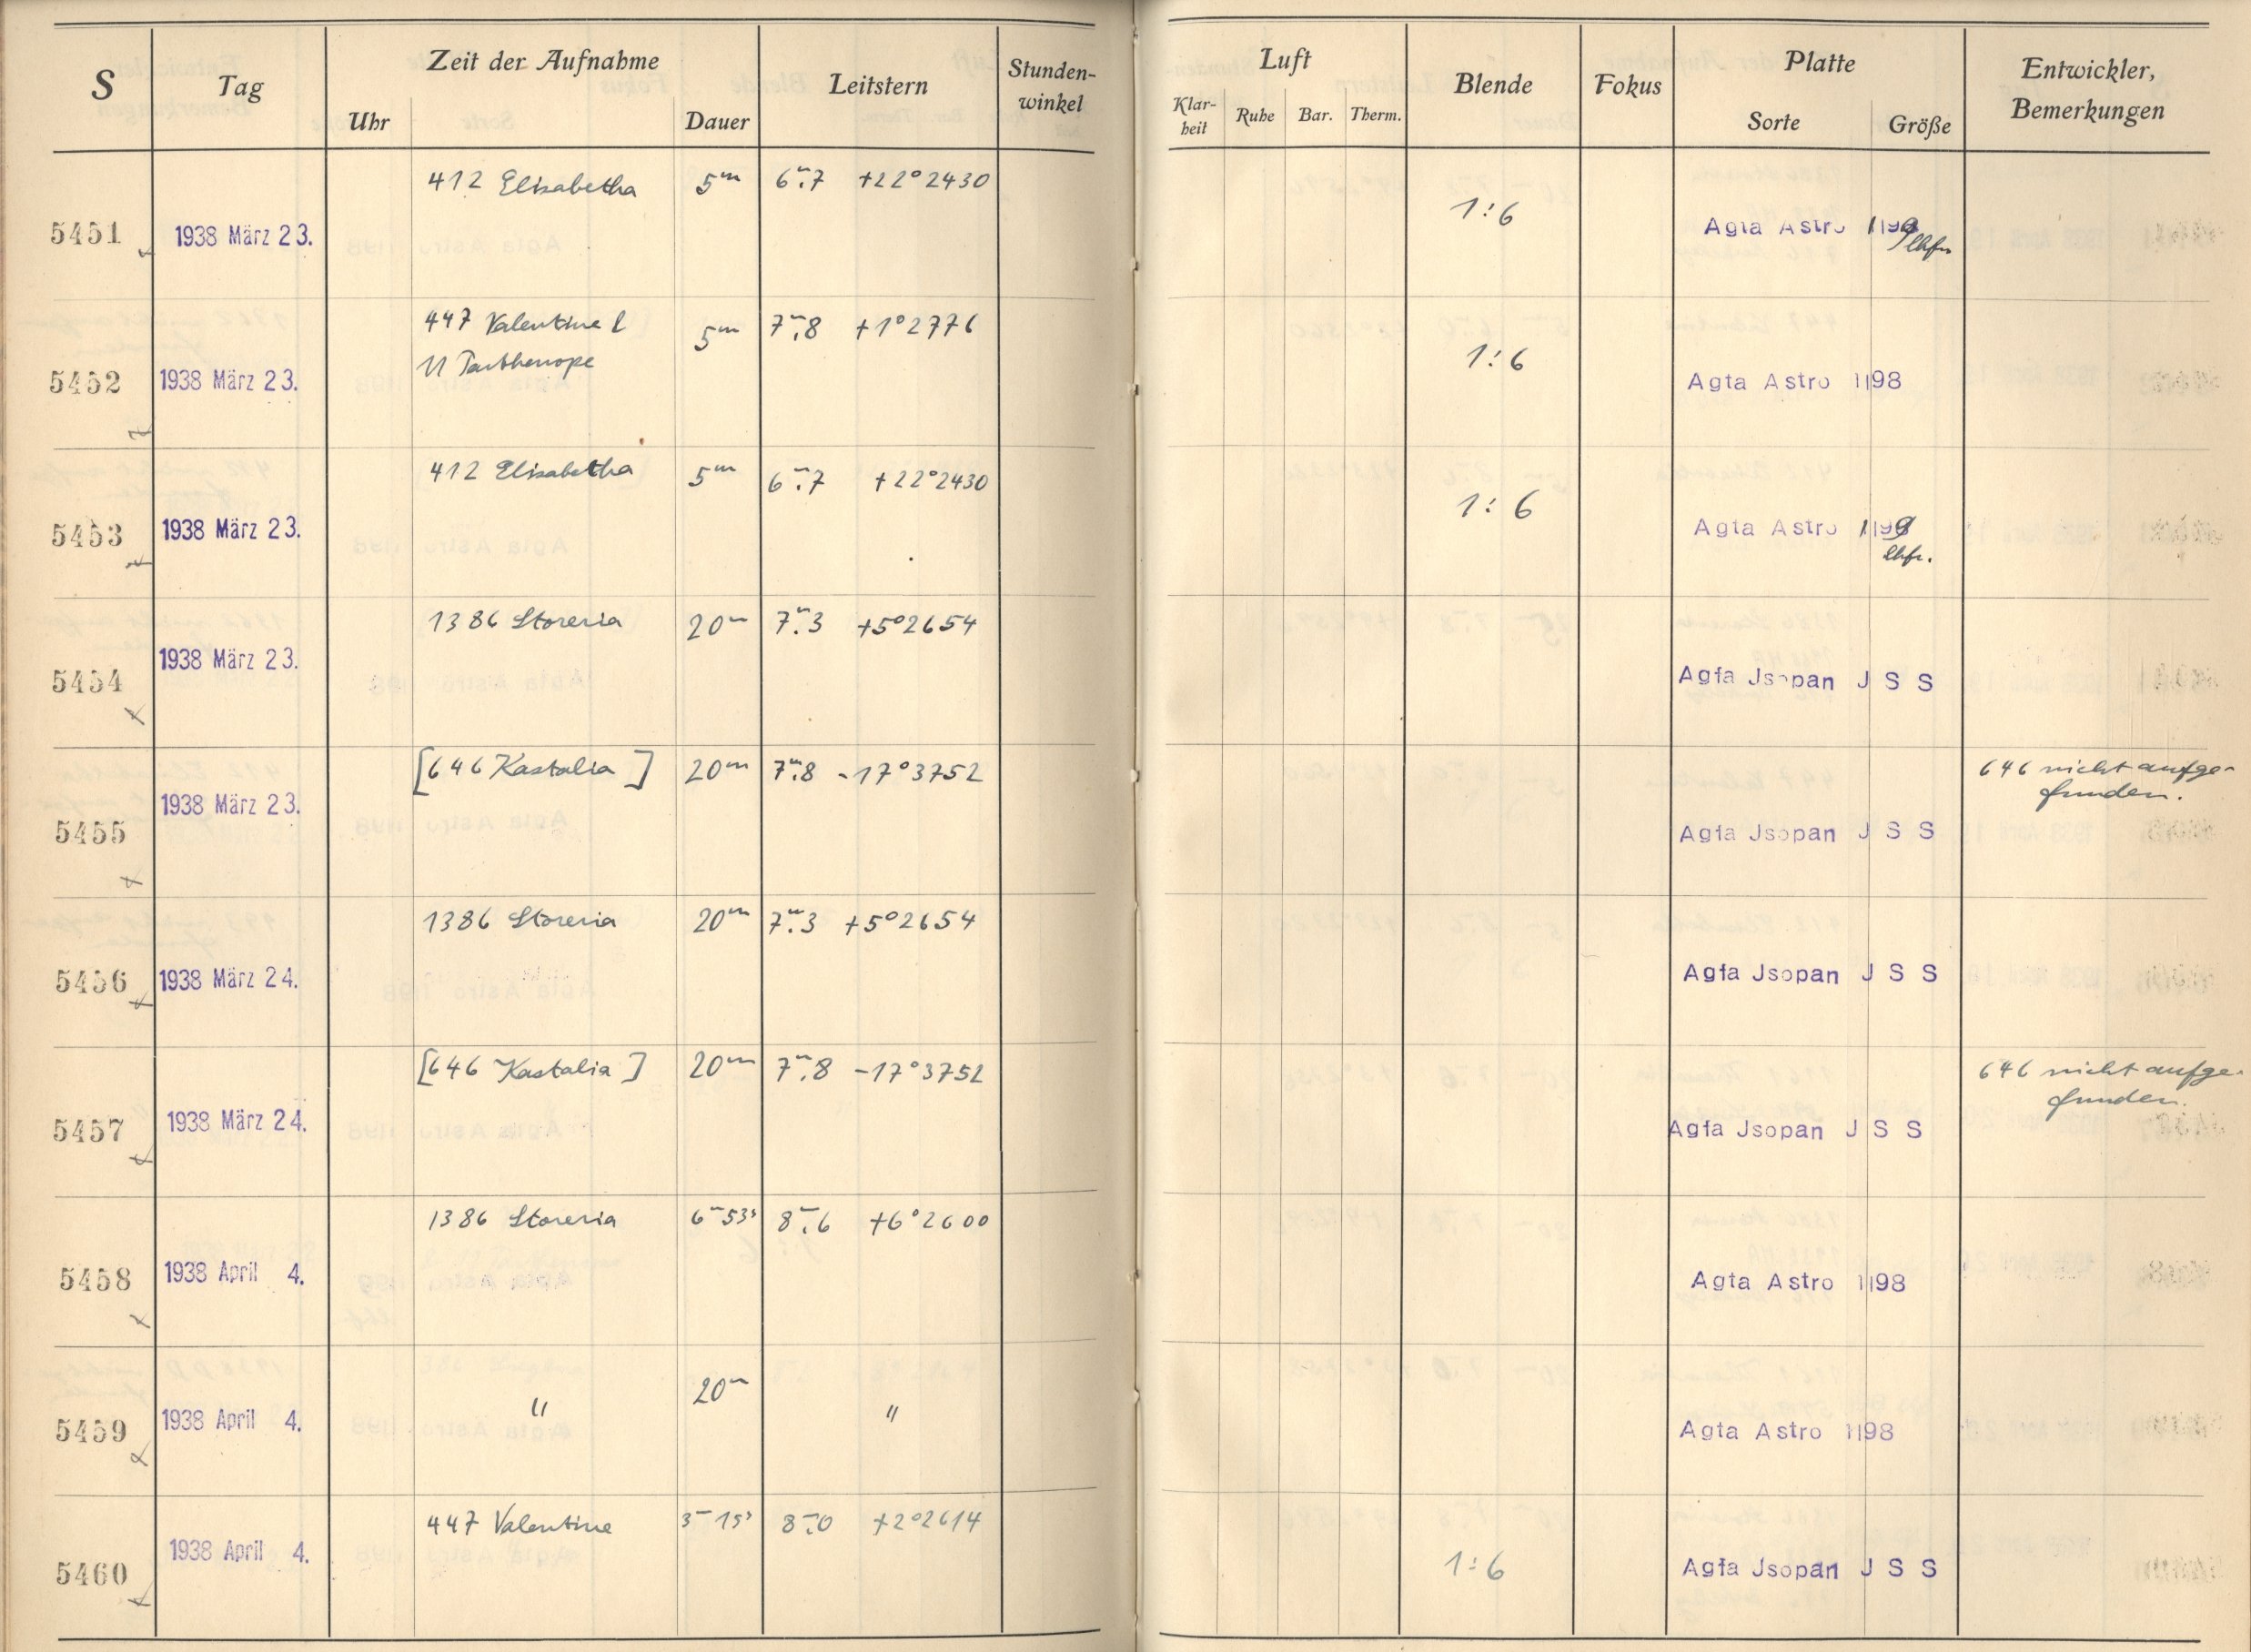 S Tag Zeit der Aufnahme Leitstern Stunden-winkel Luft Blende Fokus Platte Entwickler, Bemerkungen
Uhr Dauer Klar-heit Ruhe Bar. Therm. Sorte Größe
412 Elisabetha 5m 6m.7 +22°2430 1:6
5451 1938 März 23. Agfa Astro 1198
447 Valentine 5m 7m.8 +1°2776 1:6
11 Parthenope
5452 1938 März 23. Agfa Astro 1198
412 Elisabetha 5m 6m.7 +22°2430 1:6
5453 1938 März 23. Agfa Astro 1198
1386 Storeria 20m 7m.3 +5°2654
5454 1938 März 23. Agfa Jsopan J S S
[646 Kastalia] 20m 7m.8 -17°3752 646 nicht aufge-
funden.
5455 1938 März 23. Agfa Jsopan J S S
1386 Storeria 20m 7m.3 +5°2654
5456 1938 März 24. Agfa Jsopan J S S
[646 Kastalia] 20m 7m.8 -17°3752 646 nicht aufge-
funden.
5457 1938 März 24. Agfa Jsopan J S S
1386 Storeria 6m53s 8m.6 +6°2600
5458 1938 April 4. Agfa Astro 1198
" 20m "
5459 1938 April 4. Agfa Astro 1198
447 Valentine 3m15s 8m.0 +2°2614 1:6
5460 1938 April 4. Agfa Jsopan J S S